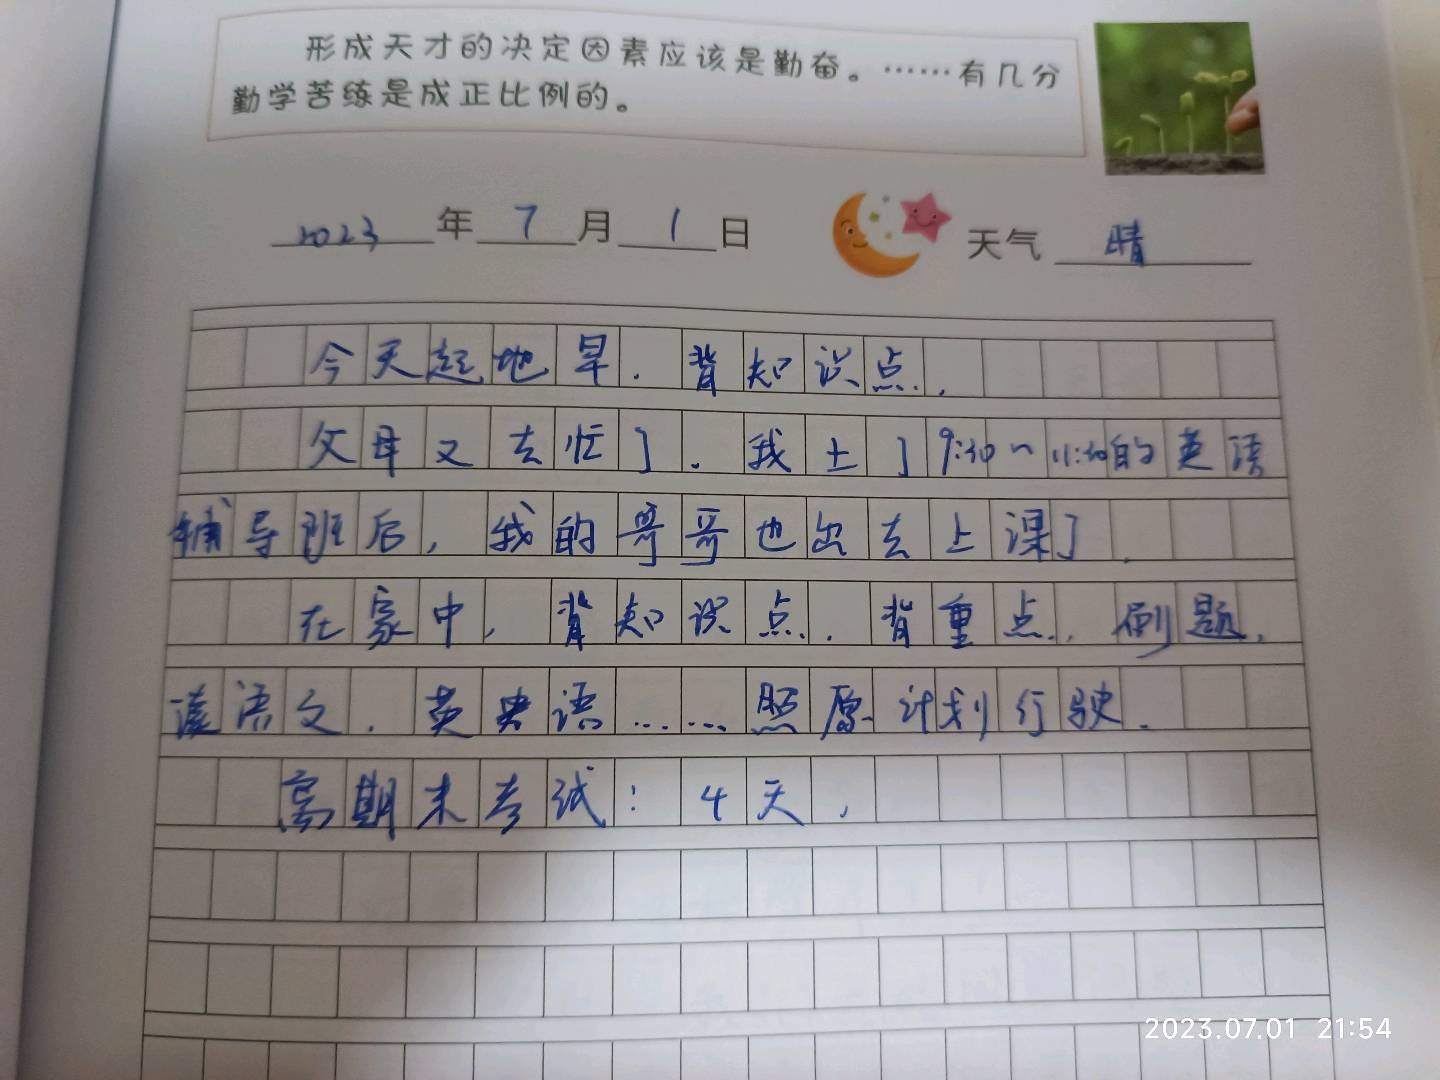 形成天才的决定因素应该是勤奋。……有几分
勤学苦练是成正比例的。
2023年7月1日 天气 晴
今天起地早.背知识点.
父母又去忙了.我上了9:30~11:30的英语
辅导班后,我的哥哥也出去上课了.
在家中,背知识点.背重点.刷题.
读语文.英语……照原计划行驶.
离期末考试:4天,
2023.07.01 21:54